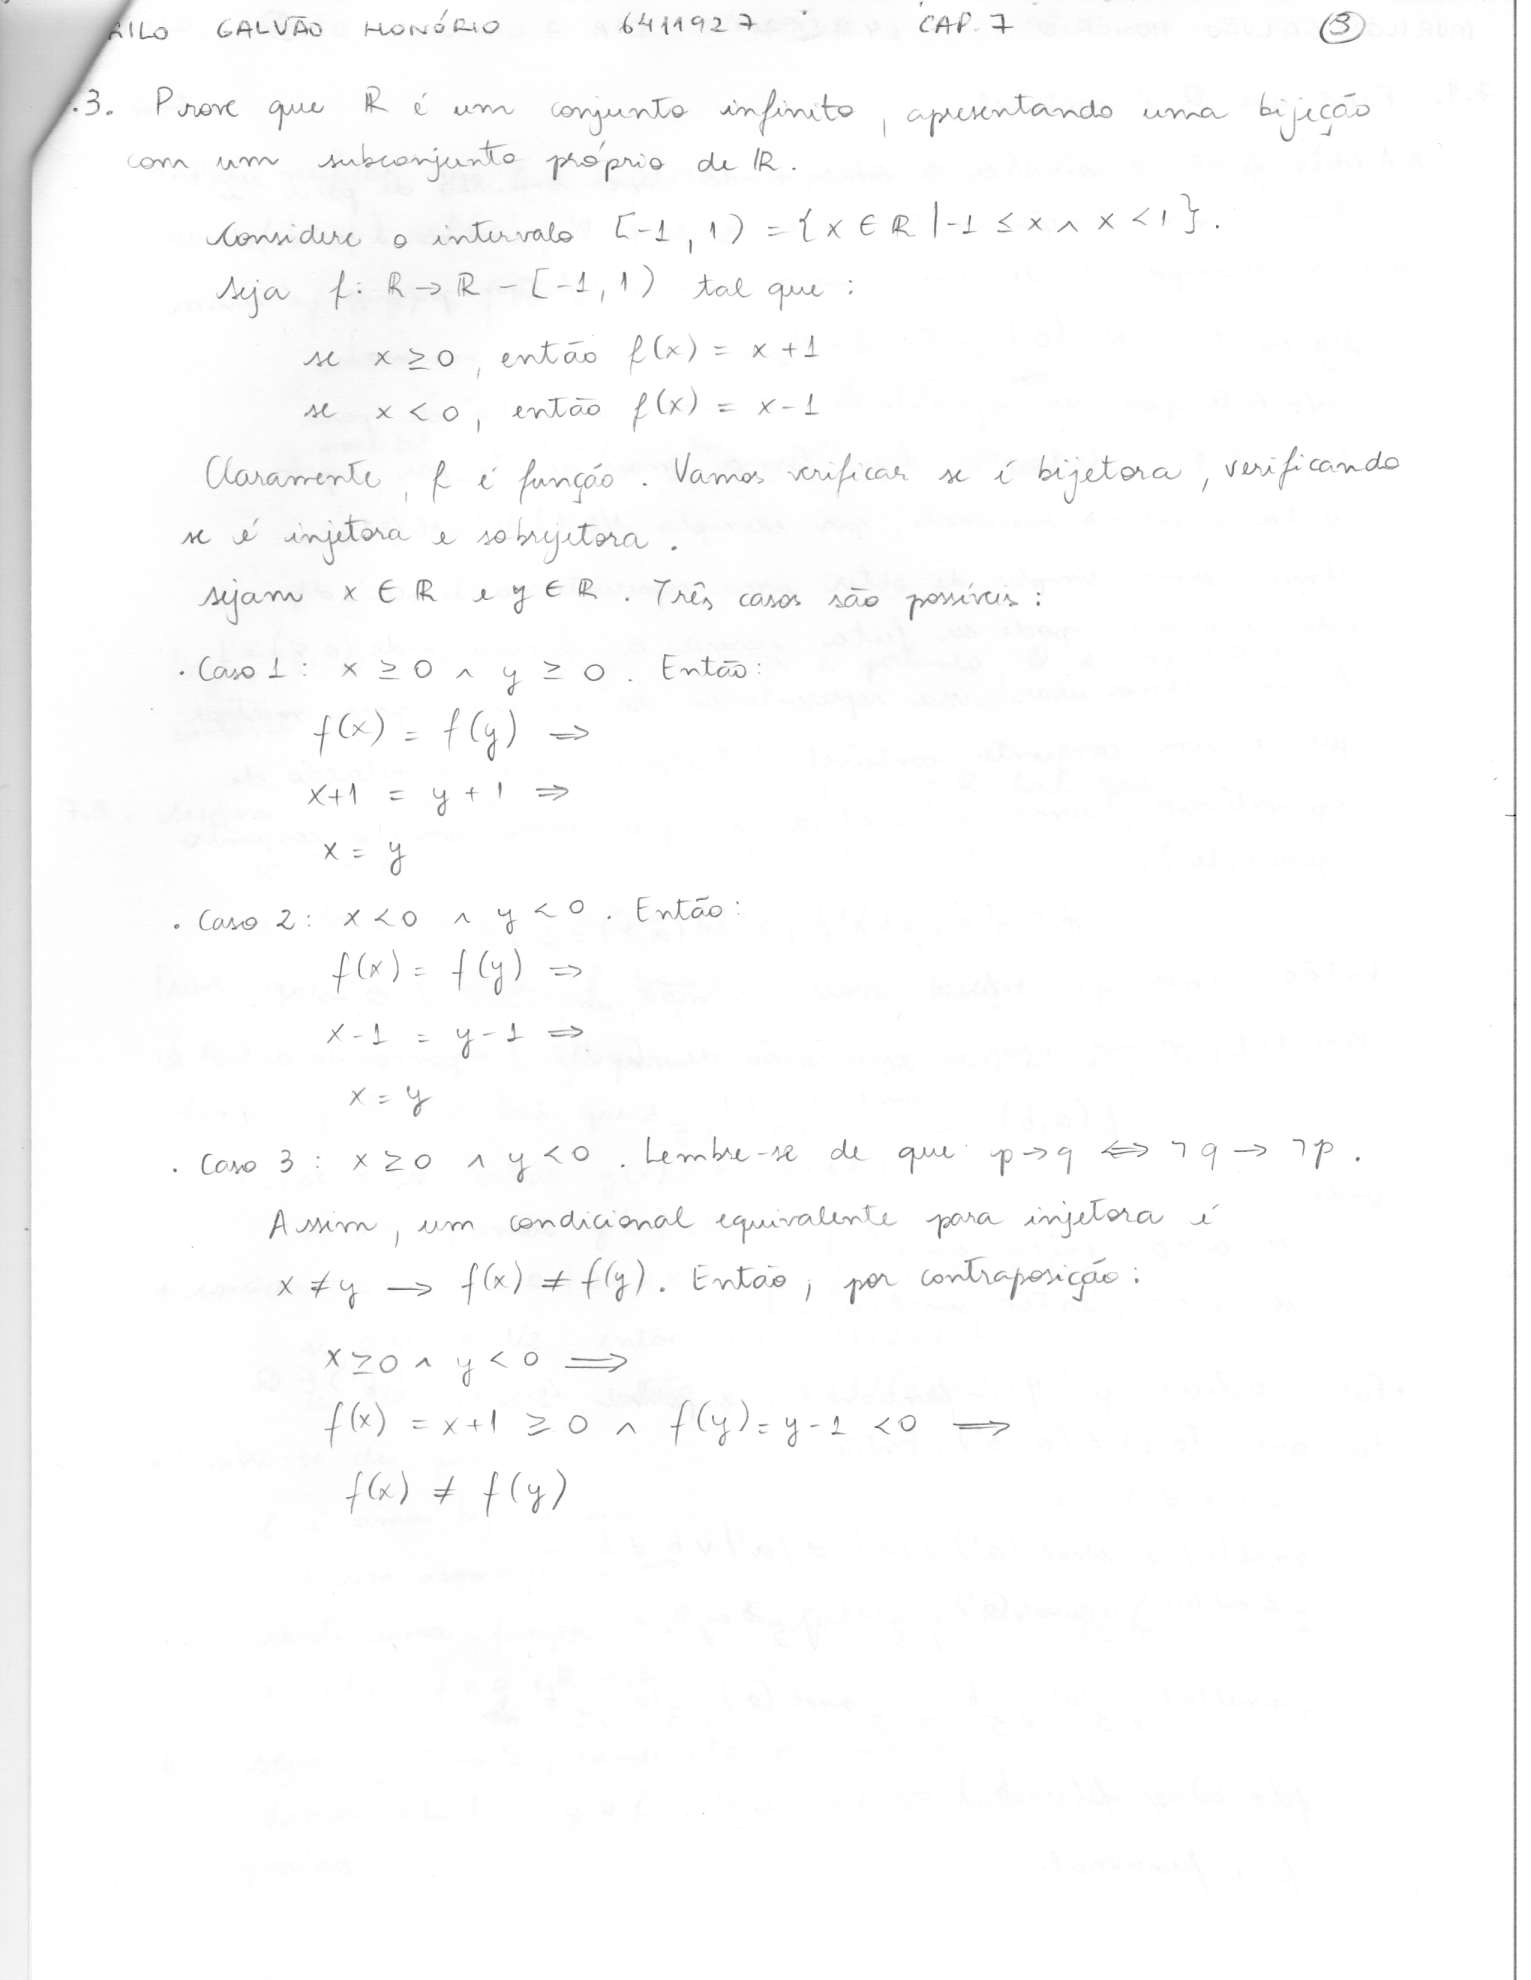 GALVÃO HONÓRIO 6411927 CAP. 7 3
.3. Prove que ℝ é um conjunto infinito, apresentando uma bijeção
com um subconjunto próprio de ℝ.
Considere o intervalo [-1, 1) = {x ∈ ℝ | -1 ≤ x ∧ x < 1}.
Seja f: ℝ → ℝ - [-1, 1) tal que:
se x ≥ 0, então f(x) = x + 1
se x < 0, então f(x) = x - 1
Claramente, f é função. Vamos verificar se é bijetora, verificando
se é injetora e sobrejetora.
Sejam x ∈ ℝ e y ∈ ℝ. Três casos são possíveis:
· Caso 1: x ≥ 0 ∧ y ≥ 0. Então:
f(x) = f(y) ⇒
x+1 = y+1 ⇒
x = y
· Caso 2: x < 0 ∧ y < 0. Então:
f(x) = f(y) ⇒
x-1 = y-1 ⇒
x = y
· Caso 3: x ≥ 0 ∧ y < 0. Lembre-se de que p → q ⇔ ¬q → ¬p.
Assim, um condicional equivalente para injetora é
x ≠ y → f(x) ≠ f(y). Então, por contraposição:
x ≥ 0 ∧ y < 0 ⇒
f(x) = x+1 ≥ 0 ∧ f(y) = y-1 < 0 ⇒
f(x) ≠ f(y)